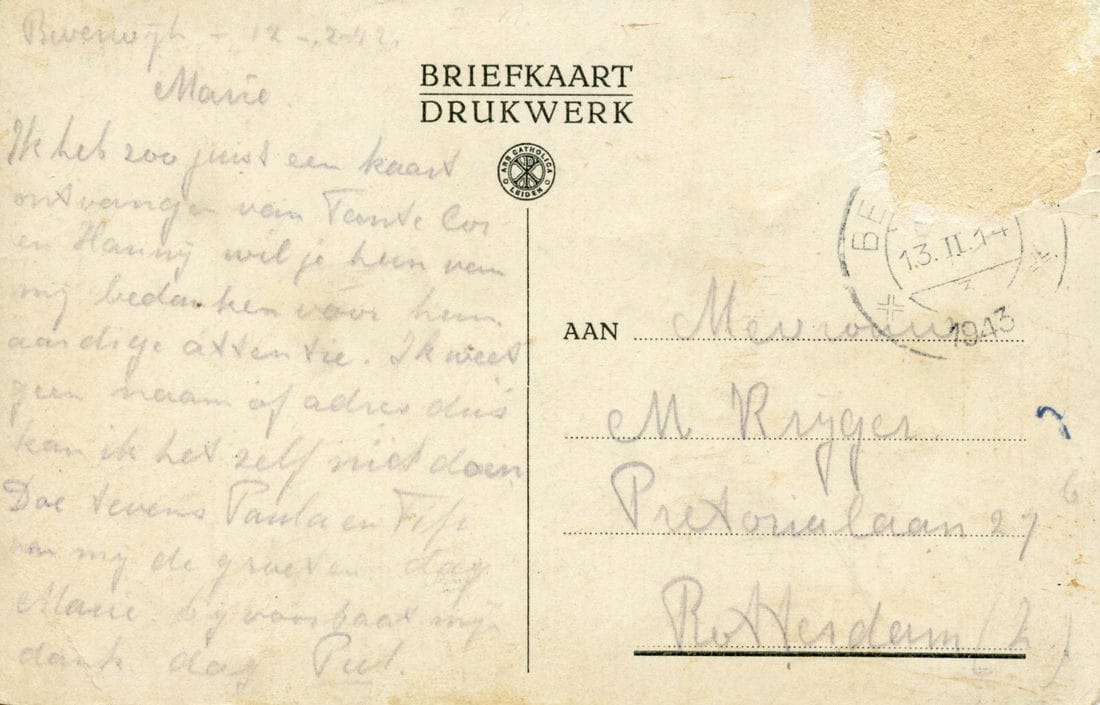 Beverwijk - 12 - 2-42.
Marie.
Ik heb zoo juist een kaart
ontvangen van Tante Cor
en Hanny wil je hun van
mij bedanken voor hun
aardige attentie. Ik weet
geen naam of adres dus
kan ik het zelf niet doen
Doe tevens Paula en Fifi
van mij de groeten dag
Marie bij voorbaat mijn
dank dag Piet.
BRIEFKAART
DRUKWERK
ARS CATHOLICA
LEIDEN
BE
13.II.14
1943
AAN Mevrouw
M Krijger
Pretorialaan 27
Rotterdam (Z)